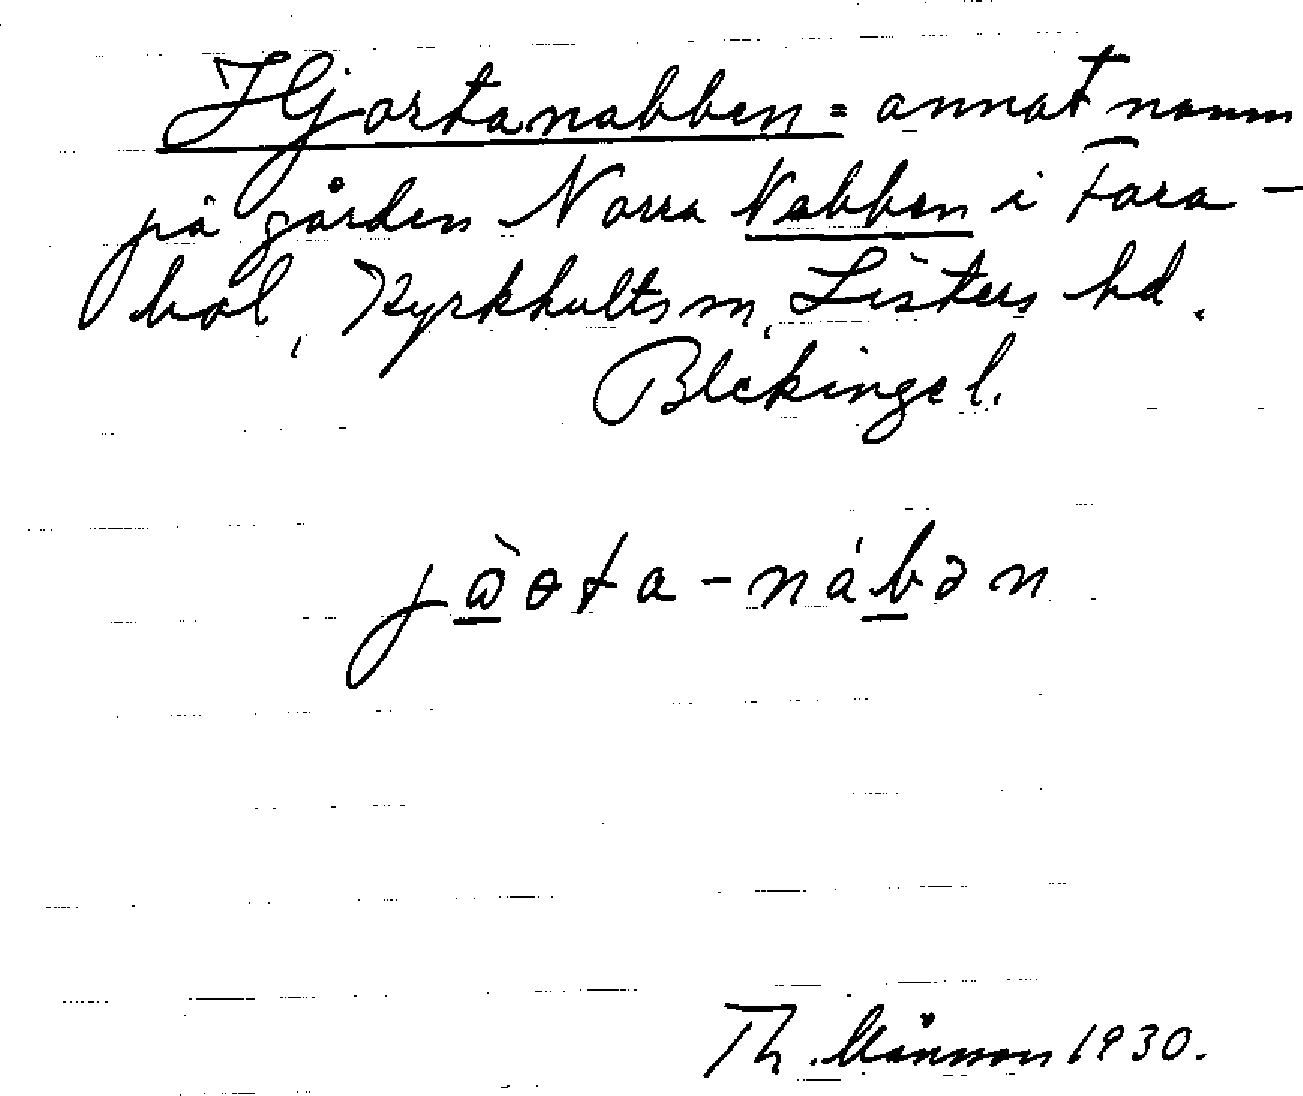 Hjortanabben = annat namn
på gården Norra Nabben i Fara-
bol, Kyrkhults sn, Listers hd.
Blekinge l.
jὰɵta-nábən
Th. Månsson 1930.